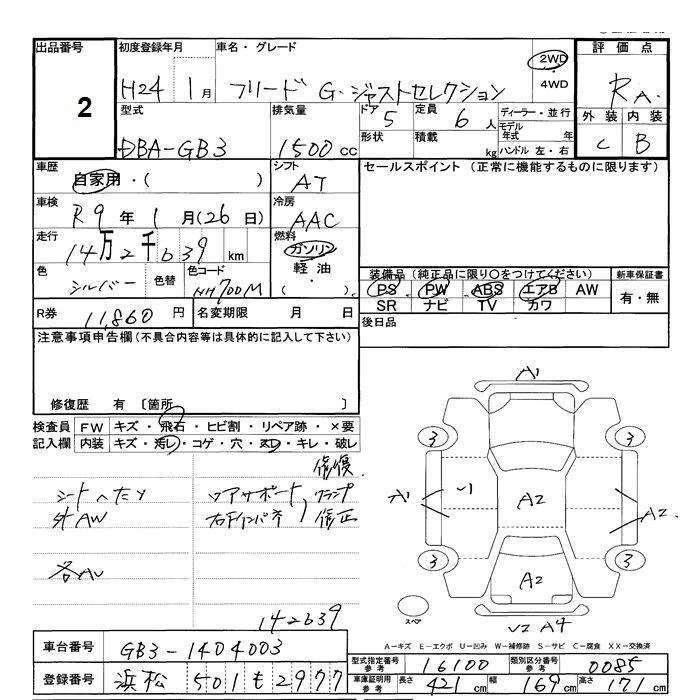 出品番号
2
初度登録年月
H24 1月
車名・グレード
フリード G・ジャストセレクション
2WD
・
4WD
評価点
RA
外装 内装
C B
型式
DBA-GB3
排気量
1500cc
ドア 5
定員 6人
形状
積載 kg
ディーラー・並行
モデル年式 年
ハンドル 左・右
車歴
自家用・( )
シフト
AT
セールスポイント (正常に機能するものに限ります)
車検
R9年 1月(26日)
冷房
AAC
走行
14万2千639km
燃料
ガソリン
軽油
( )
色
シルバー
色替
色コード
NH700M
装備品 (純正品に限り○をつけてください)
PS PW ABS エアB AW
SR ナビ TV カワ
新車保証書
有・無
R券 11,860円
名変期限 月 日
後日品
注意事項申告欄(不具合内容等は具体的に記入して下さい)
修復歴 有 〔箇所 〕
検査員記入欄
FW キズ・飛石・ヒビ割・リペア跡・×要
内装 キズ・汚レ・コゲ・穴・スレ・キレ・破レ
修復
シートヘタリ
外AW
コアサポート, クランプ
右インパネ 修正
142639
A1
3 3
A1 A2 A2
3 3
A2
スペア
A4
A-キズ E-エクボ U-凹み W-補修跡 S-サビ C-腐食 XX-交換済
車台番号 GB3-1404003
登録番号 浜松 501 も 2977
型式指定番号 参考 16100
類別区分番号 参考 0085
車庫証明用 参考 長さ 421cm 幅 169cm 高さ 171cm